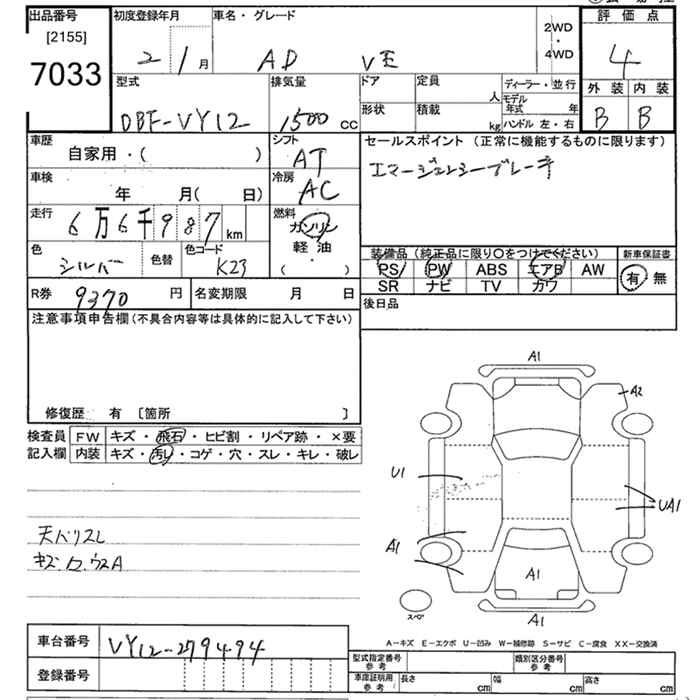 出品番号 初度登録年月 車名・グレード 2WD・4WD 評価点
[2155]
7033
2 / 1 月 AD VE 4
型式 排気量 ドア 定員 人 ディーラー・並行 外装 内装
DBF-VY12 1500 cc 形状 積載 kg モデル年式 年 ハンドル 左・右 B B
車歴 シフト セールスポイント (正常に機能するものに限ります)
自家用・( ) AT エマージェンシーブレーキ
車検 冷房
年 月( 日) AC
走行 燃料
6万6千987 km ガソリン
軽油
( )
色 色替 色コード
シルバー K23
装備品 (純正品に限り○をつけてください) 新車保証書
PS PW ABS エアB AW 有 無
SR ナビ TV カワ
R券 9370 円 名変期限 月 日 後日品
注意事項申告欄 (不具合内容等は具体的に記入して下さい)
修復歴 有 [箇所 ]
検査員 FW キズ・飛石・ヒビ割・リペア跡・×要
記入欄 内装 キズ・汚レ・コゲ・穴・スレ・キレ・破レ
A1
A2
U1
UA1
A1
A1
スペア
A1
天バリスレ
A-キズ E-エクボ U-凹み W-補修跡 S-サビ C-腐食 XX-交換済
車台番号 VY12-279494
型式指定番号 参考 類別区分番号 参考
登録番号
車庫証明用 参考 長さ cm 幅 cm 高さ cm